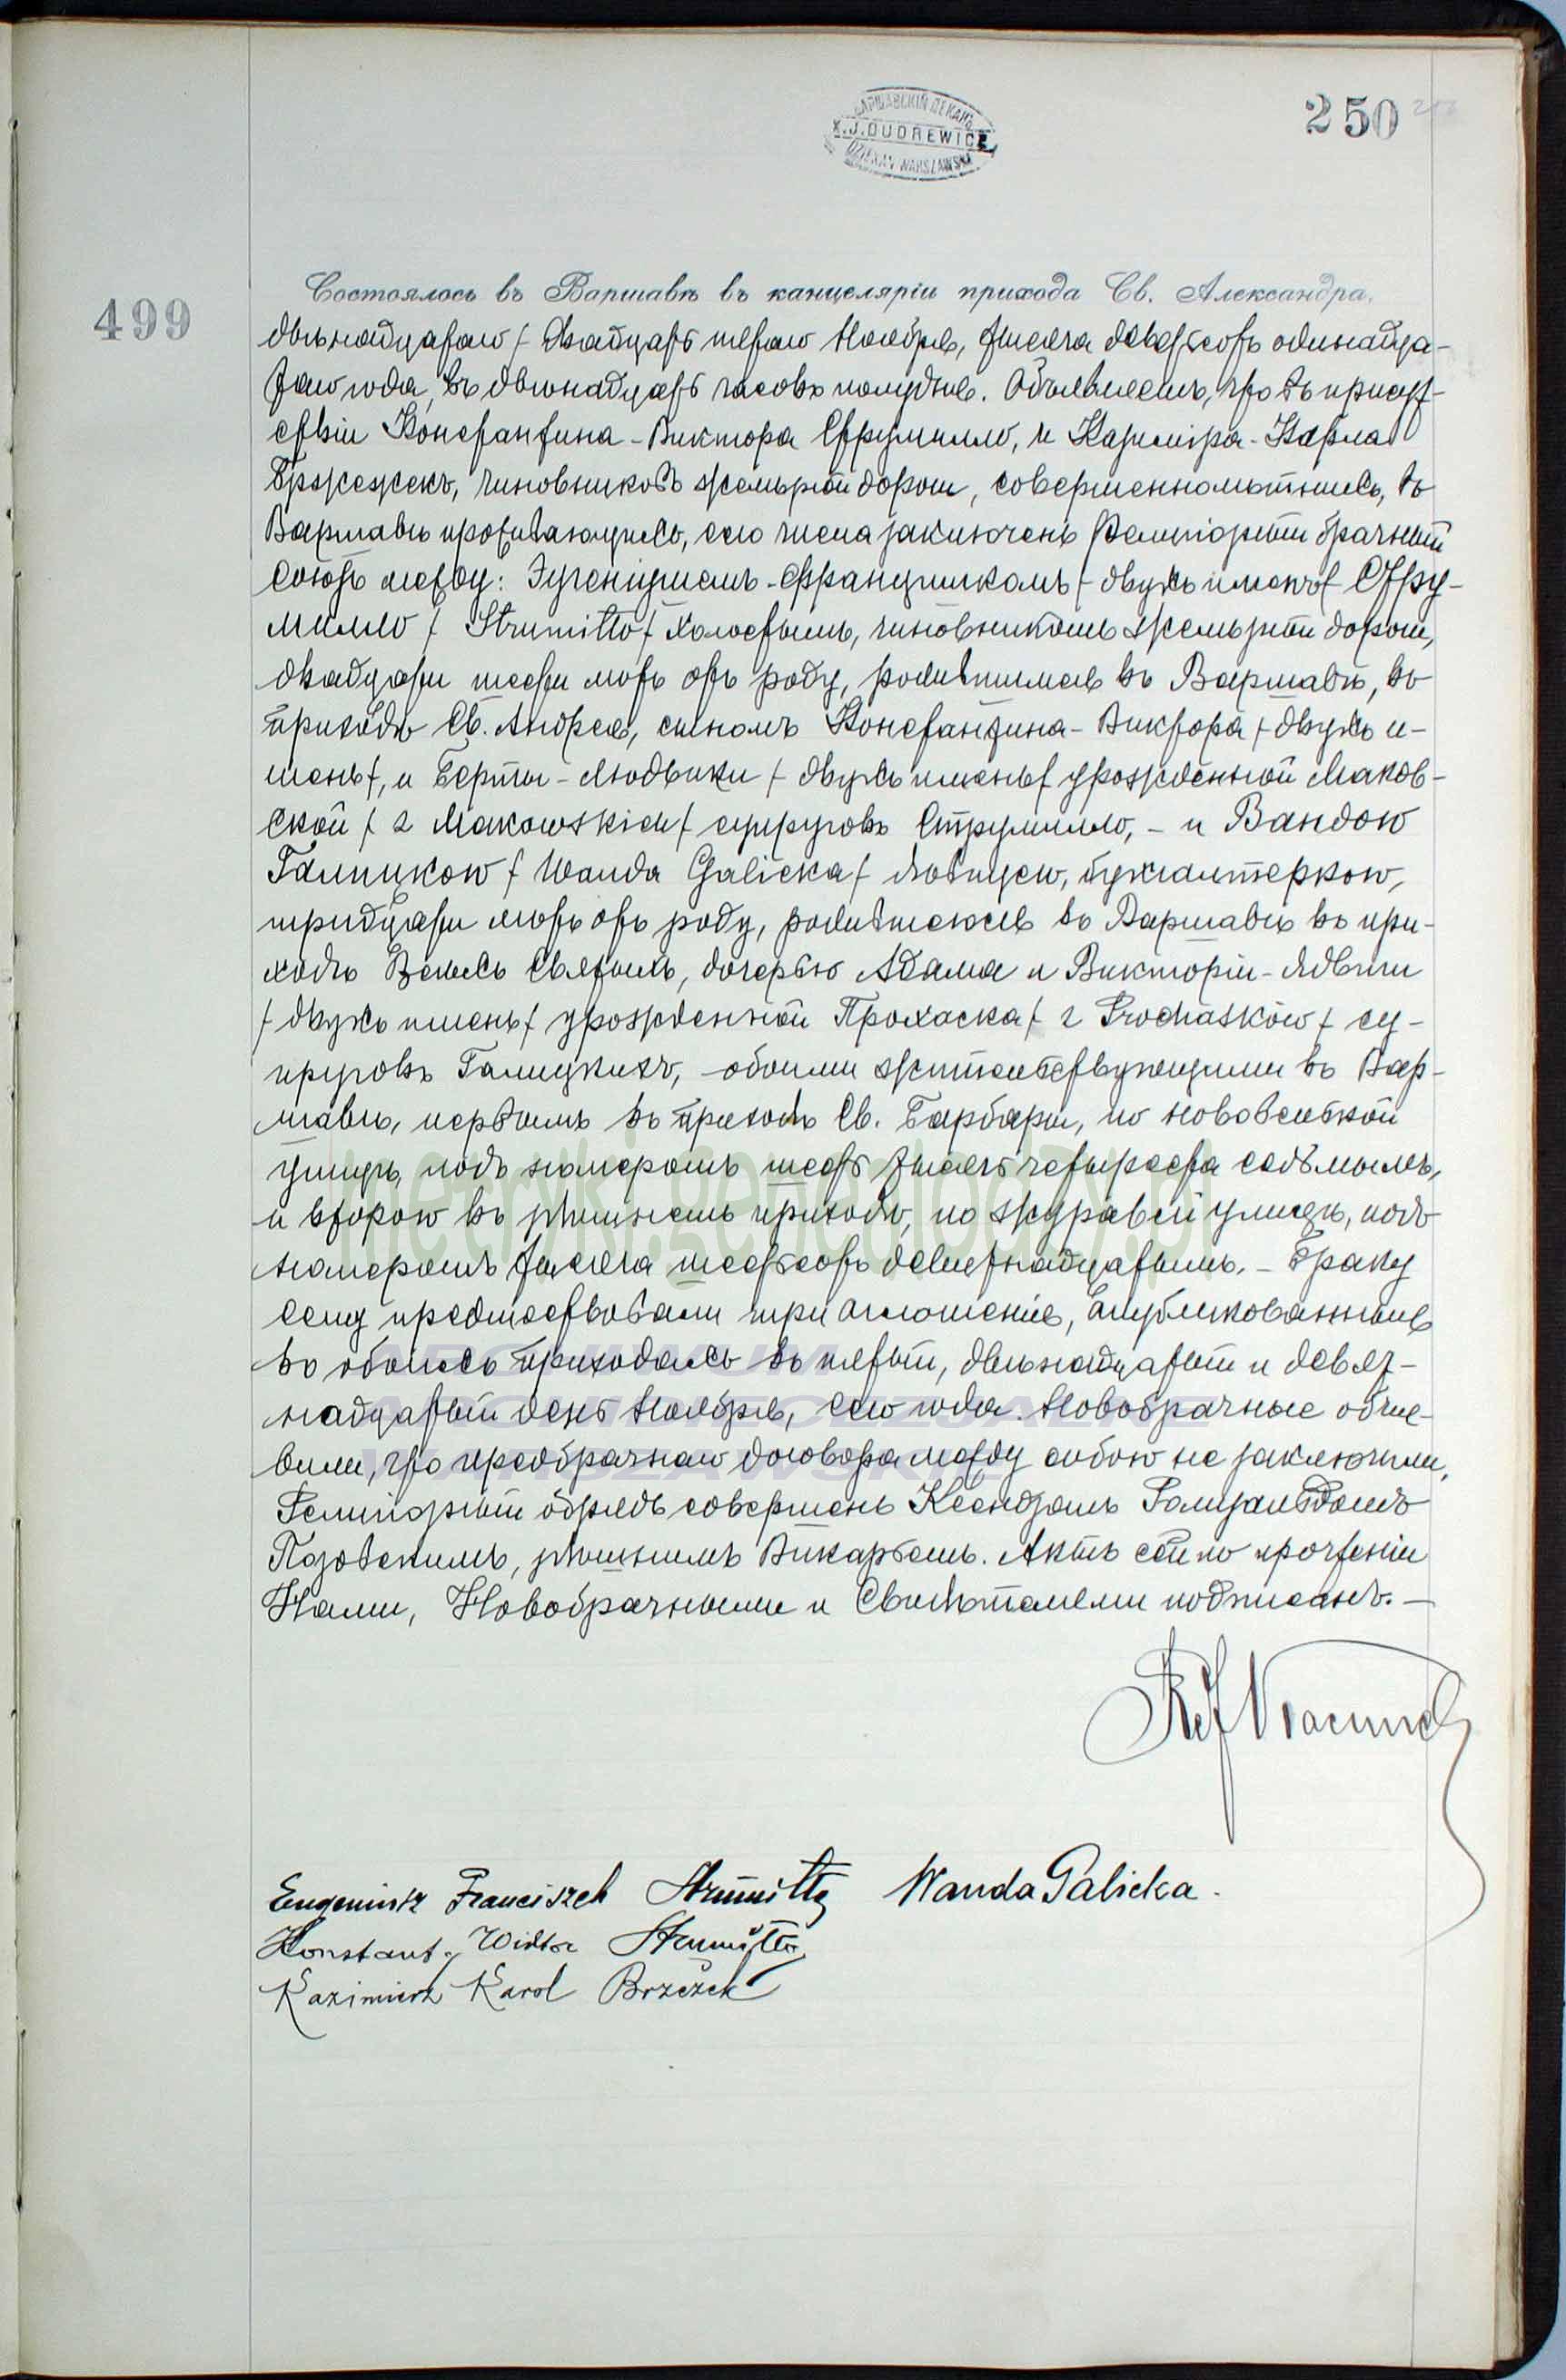 250
ВАРШАВСКІЙ ДЕКАНЪ
X.J.DUDREWICZ
DZIEKAN WARSZAWSKI
499
Состоялось въ Варшавѣ въ канцеляріи прихода Св. Александра,
двѣнадцатаго / двадцать пятаго Ноября, тысяча девятьсотъ одинадца-
таго года, въ двѣнадцать часовъ полудня. Объявляемъ, что въ присут-
ствіи Константина-Виктора Струмилло, и Казиміра-Карла
Бржежекъ, чиновниковъ желѣзной дороги, совершеннолѣтнихъ, въ
Варшавѣ проживающихъ, сего числа заключенъ религіозный брачный
союзъ между: Эугеніушемъ-Францишкомъ / двухъ именъ / Стру-
милло / Strumiłło / холостымъ, чиновникомъ желѣзной дороги,
двадцати шести лѣтъ отъ роду, родившимся въ Варшавѣ, въ
приходѣ Св. Андрея, сыномъ Константина-Виктора / двухъ и-
менъ /, и Берты-Людвики / двухъ именъ / урожденной Маков-
ской / z Makowskich / супруговъ Струмилло, - и Вандою
Галицкою / Wanda Galicka / дѣвицею, бухгалтеркою,
тридцати лѣтъ отъ роду, родившеюся въ Варшавѣ въ при-
ходѣ Всѣхъ Святыхъ, дочерью Адама и Викторіи-Ядвиги
/ двухъ именъ / урожденной Прохаска / z Prochasków / су-
пруговъ Галицкихъ, обоими жительствующими въ Вар-
шавѣ, первымъ въ приходѣ Св. Барбары, по Нововейской
улицѣ, подъ номеромъ шесть тысячъ четыреста седьмымъ,
и второю въ здѣшнемъ приходѣ, по Журавей улицѣ, подъ
номеромъ тысяча шестьсотъ девятнадцатымъ. - Браку
сему предшествовали три оглашенія, опубликованныя
въ обоихъ приходахъ въ пятый, двѣнадцатый и девят-
надцатый день Ноября, сего года. Новобрачные объя-
вили, что предбрачнаго договора между собою не заключили.
Религіозный обрядъ совершенъ Ксендзомъ Ромуальдомъ
здѣшнимъ Викаріемъ. Актъ сей по прочтеніи
Нами, Новобрачными и Свидѣтелями подписанъ. —
Eugeniusz Franciszek Strumiłło Wanda Galicka.
Konstanty Wiktor Strumiłło
Kazimierz Karol Brzeżek
metryki.genealodzy.pl
ARCHIWUM
ARCHIDIECEZJALNE
WARSZAWSKIE